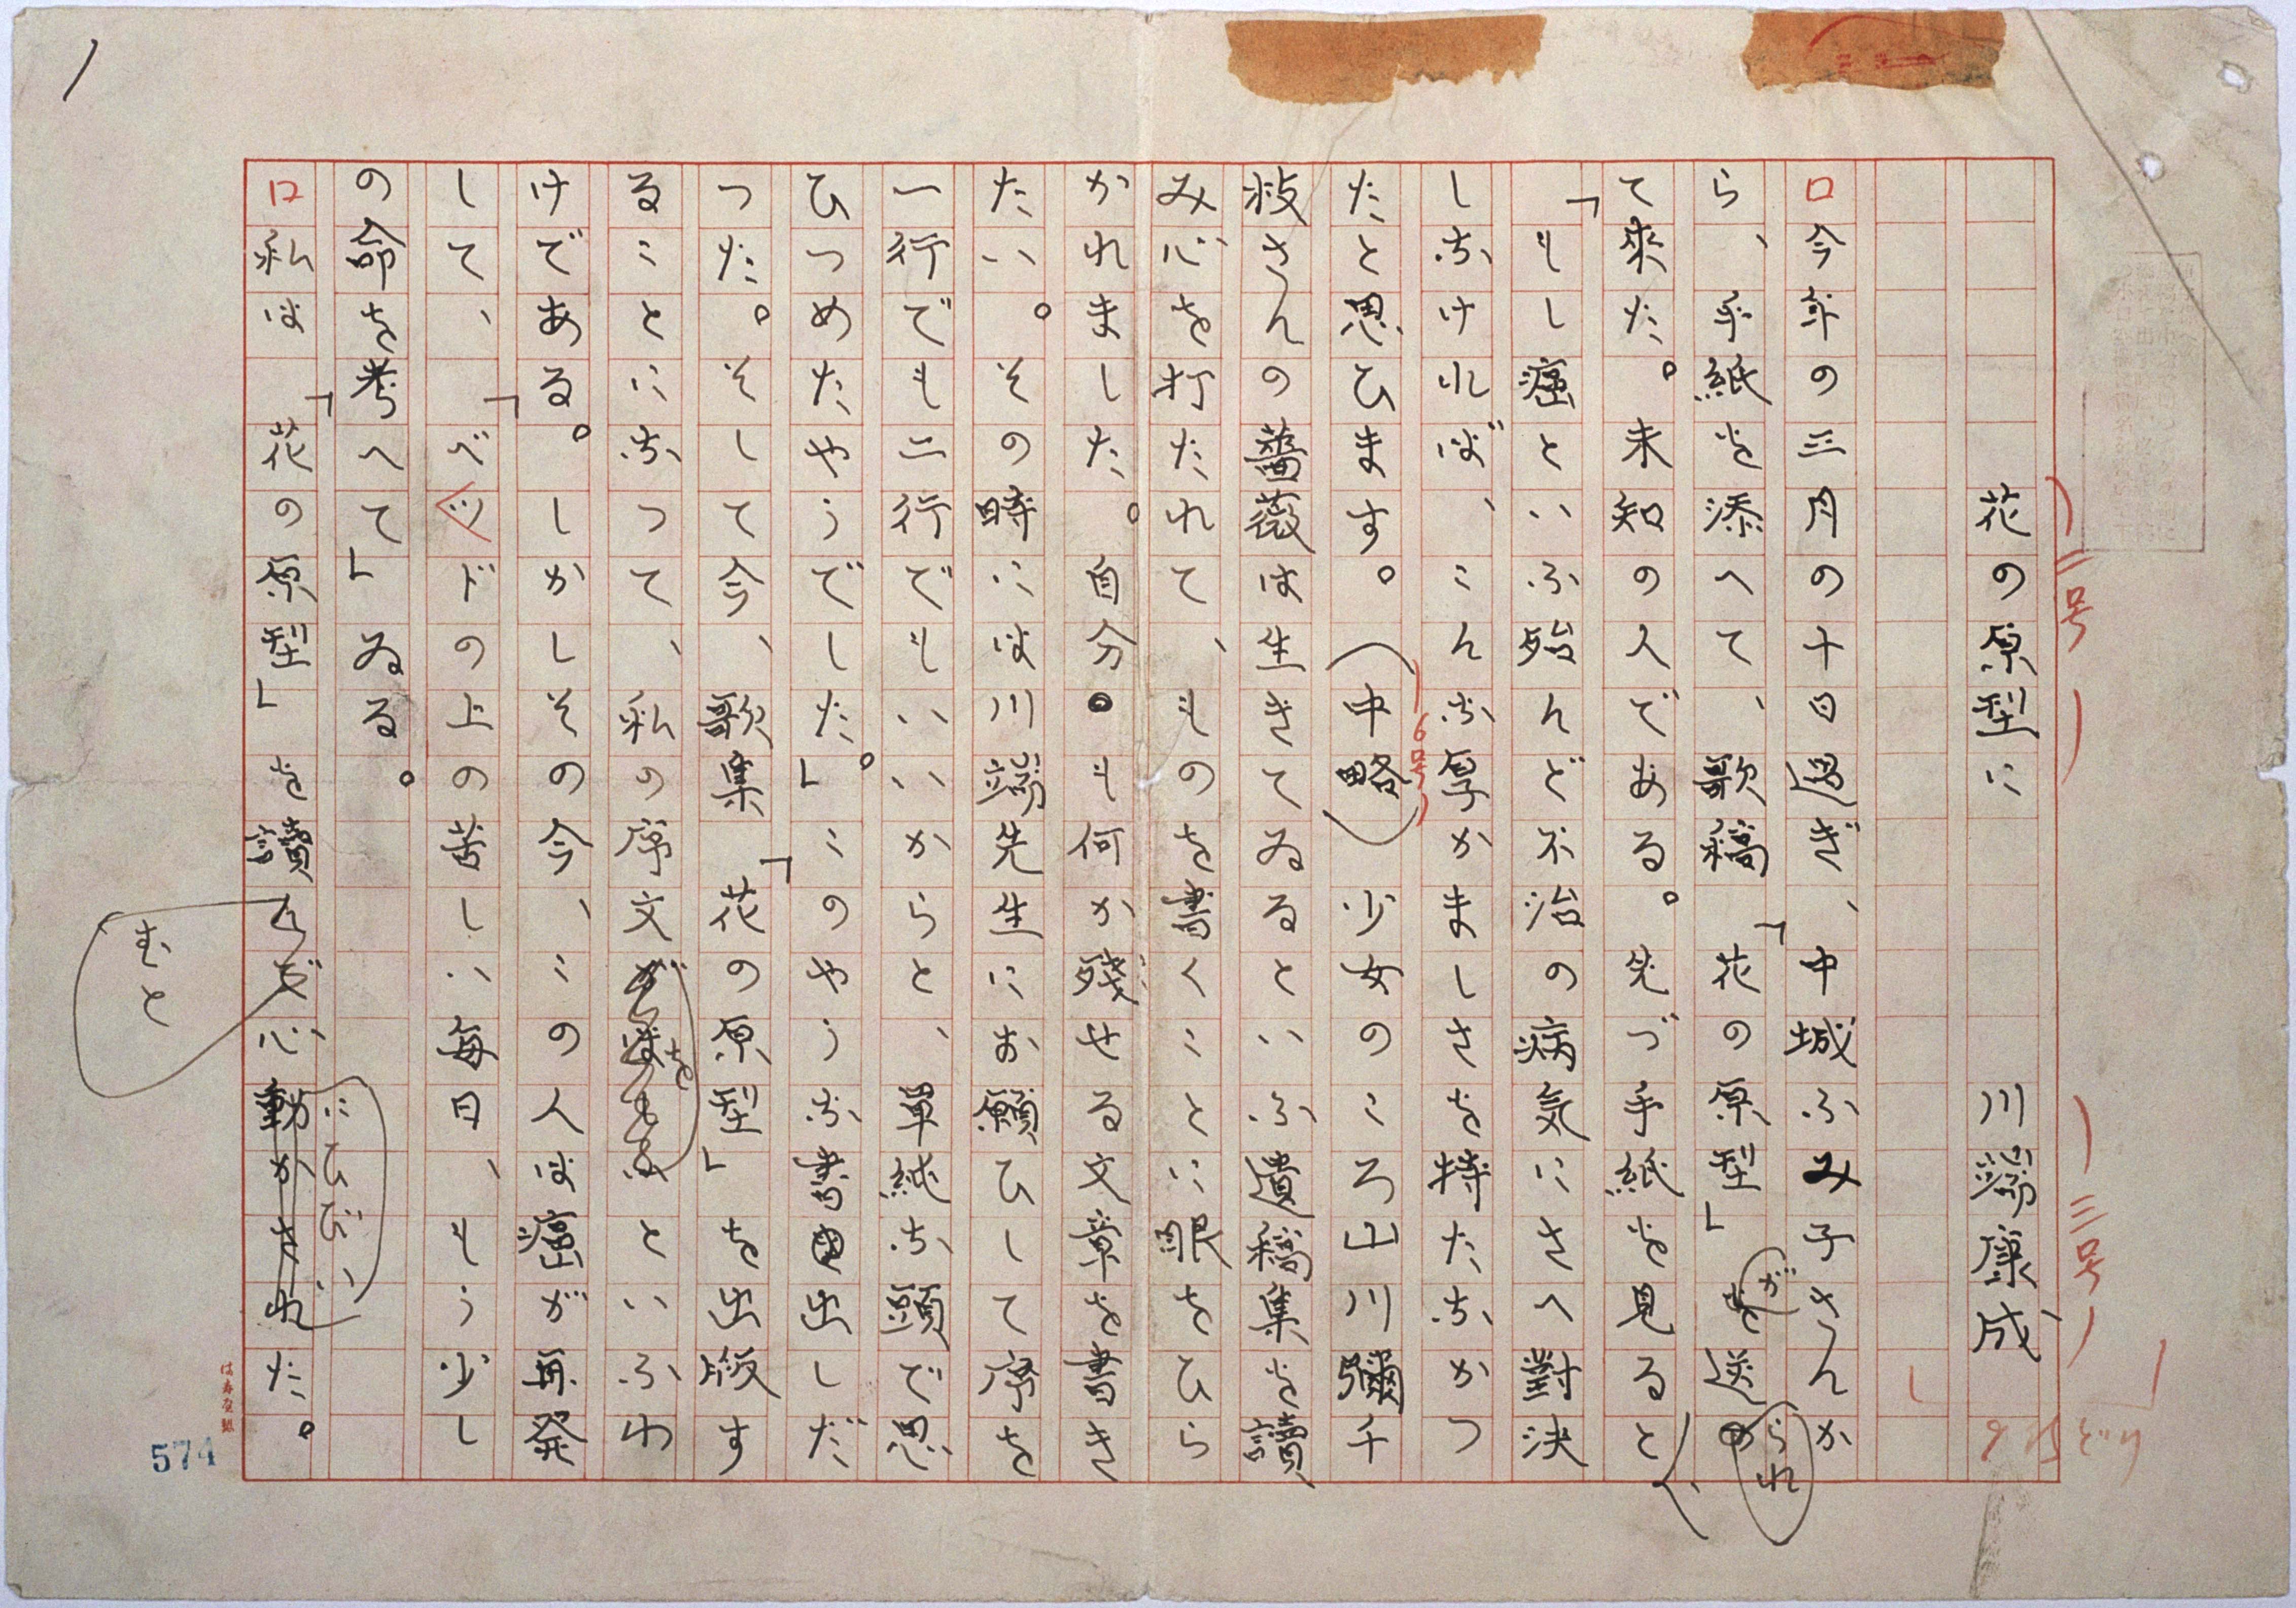 二号
三号
花の原型に 川端康成
今年の三月の十日過ぎ、中城ふみ子さんか
ら、手紙を添へて、歌稿「花の原型」が送られ
て来た。未知の人である。先づ手紙を見ると、
「もし癌といふ殆んど不治の病気にさへ對決
しなければ、こんな厚かましさを持たなかつ
6号
たと思ひます。(中略)少女のころ山川彌千
枝さんの薔薇は生きてゐるといふ遺稿集を讀
み心を打たれて、ものを書くことに眼をひら
かれました。自分も何か殘せる文章を書き
たい。その時には川端先生にお願ひして序を
一行でも二行でもいいからと、單純な頭で思
ひつめたやうでした。」このやうな書出しだ
つた。そして今、歌集「花の原型」を出版す
ることになつて、私の序文をといふわ
けである。しかしその今、この人は癌が再発
して、「ベッドの上の苦しい毎日、もう少し
の命を考へて」ゐる。
私は「花の原型」を讀むと心にひびいた。
574